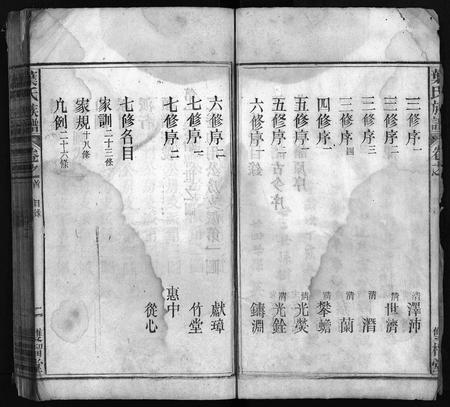 葉氏族譜 卷之首
三修序一 清 澤沛
三修序二 清 世濟
三修序三 清 渭
三修序四 清 蘭
四修序 清 攀蟾
五修序一 清 光奬
五修序二 清 光銓
六修序一 清 鑄淵
六修序二 獻璋
七修序一 竹堂
七修序二 惠中
七修序三 從心
七修名目
家訓二十三條
家規十八條
凡例二十六條
葉氏族譜 卷之首 目錄 二